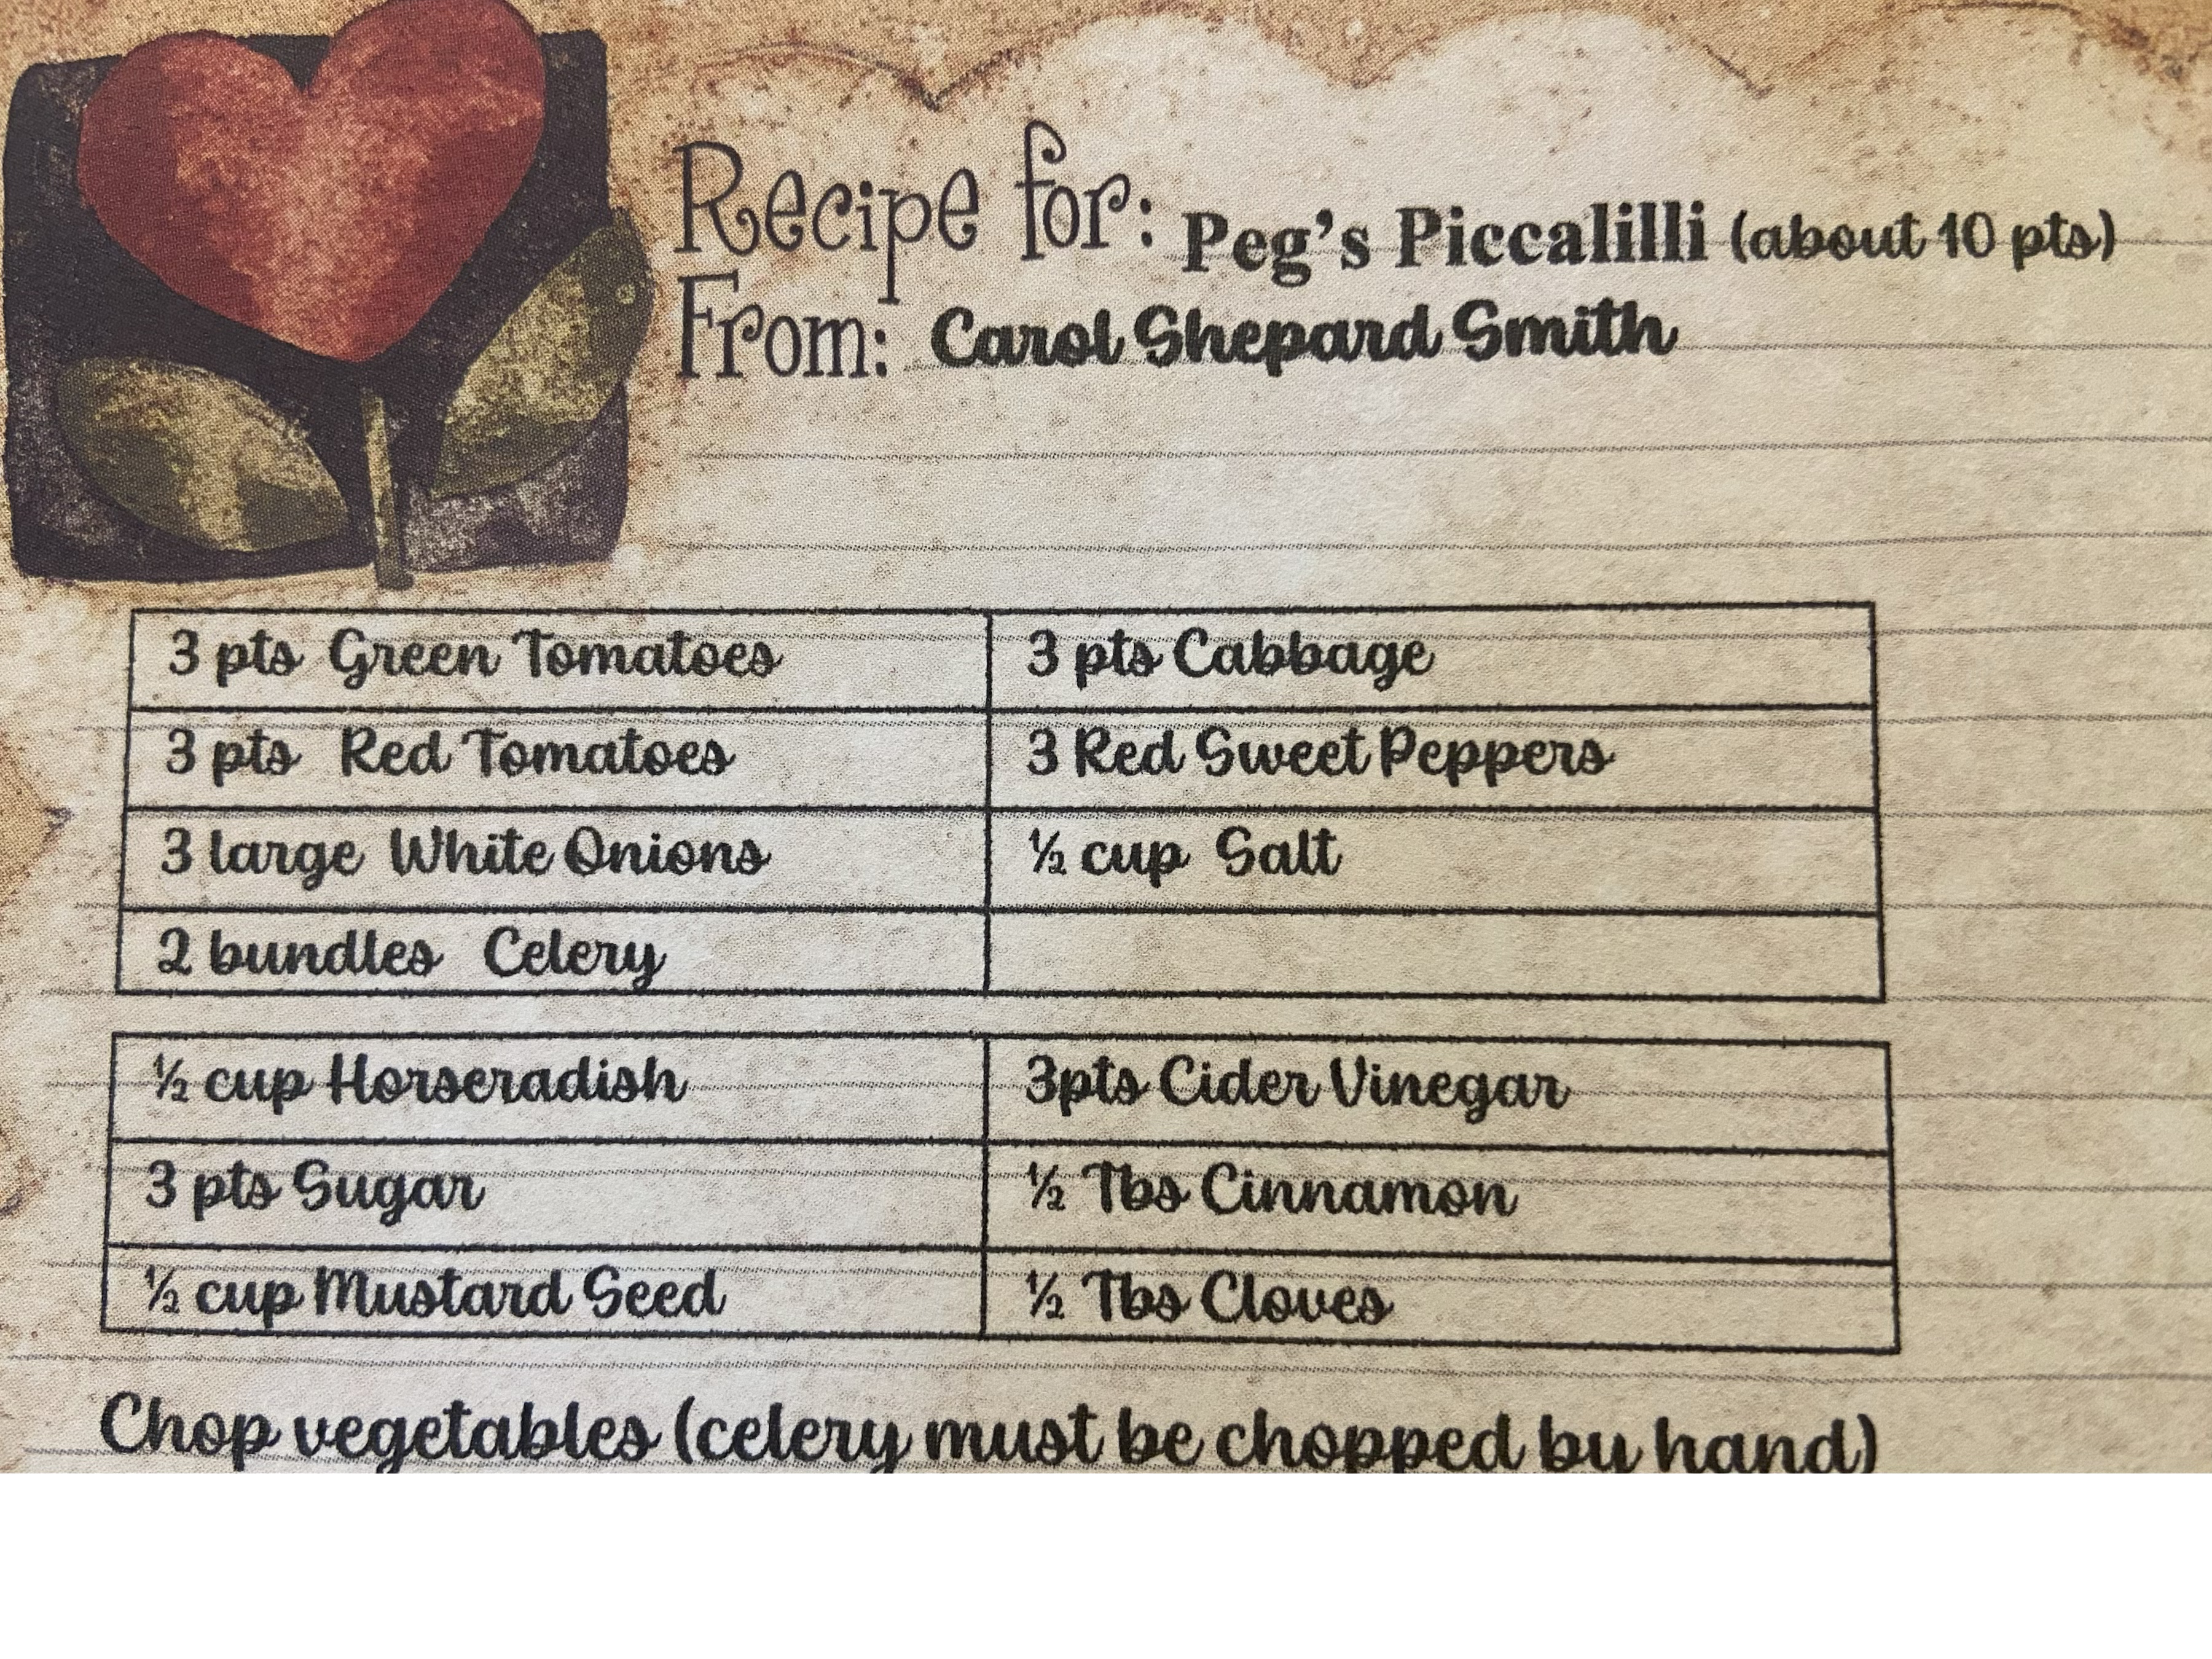 Recipe for: Peg's Piccalilli (about 10 pts)
From: Carol Shepard Smith
3 pts Green Tomatoes 3 pts Cabbage
3 pts Red Tomatoes 3 Red Sweet Peppers
3 large White Onions ½ cup Salt
2 bundles Celery
½ cup Horseradish 3pts Cider Vinegar
3 pts Sugar ½ Tbs Cinnamon
½ cup Mustard Seed ½ Tbs Cloves
Chop vegetables (celery must be chopped by hand)